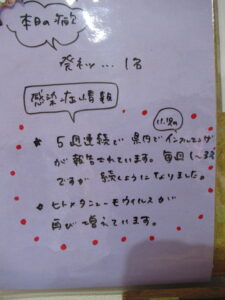 本日の病欠
発熱… 1名
感染症情報
11.18の
★ 5週連続で 県内でインフルエンザ
が報告されています。毎週1〜3
ですが 続くようになりました。
★ ヒトメタニューモウイルスが
再び増えています。